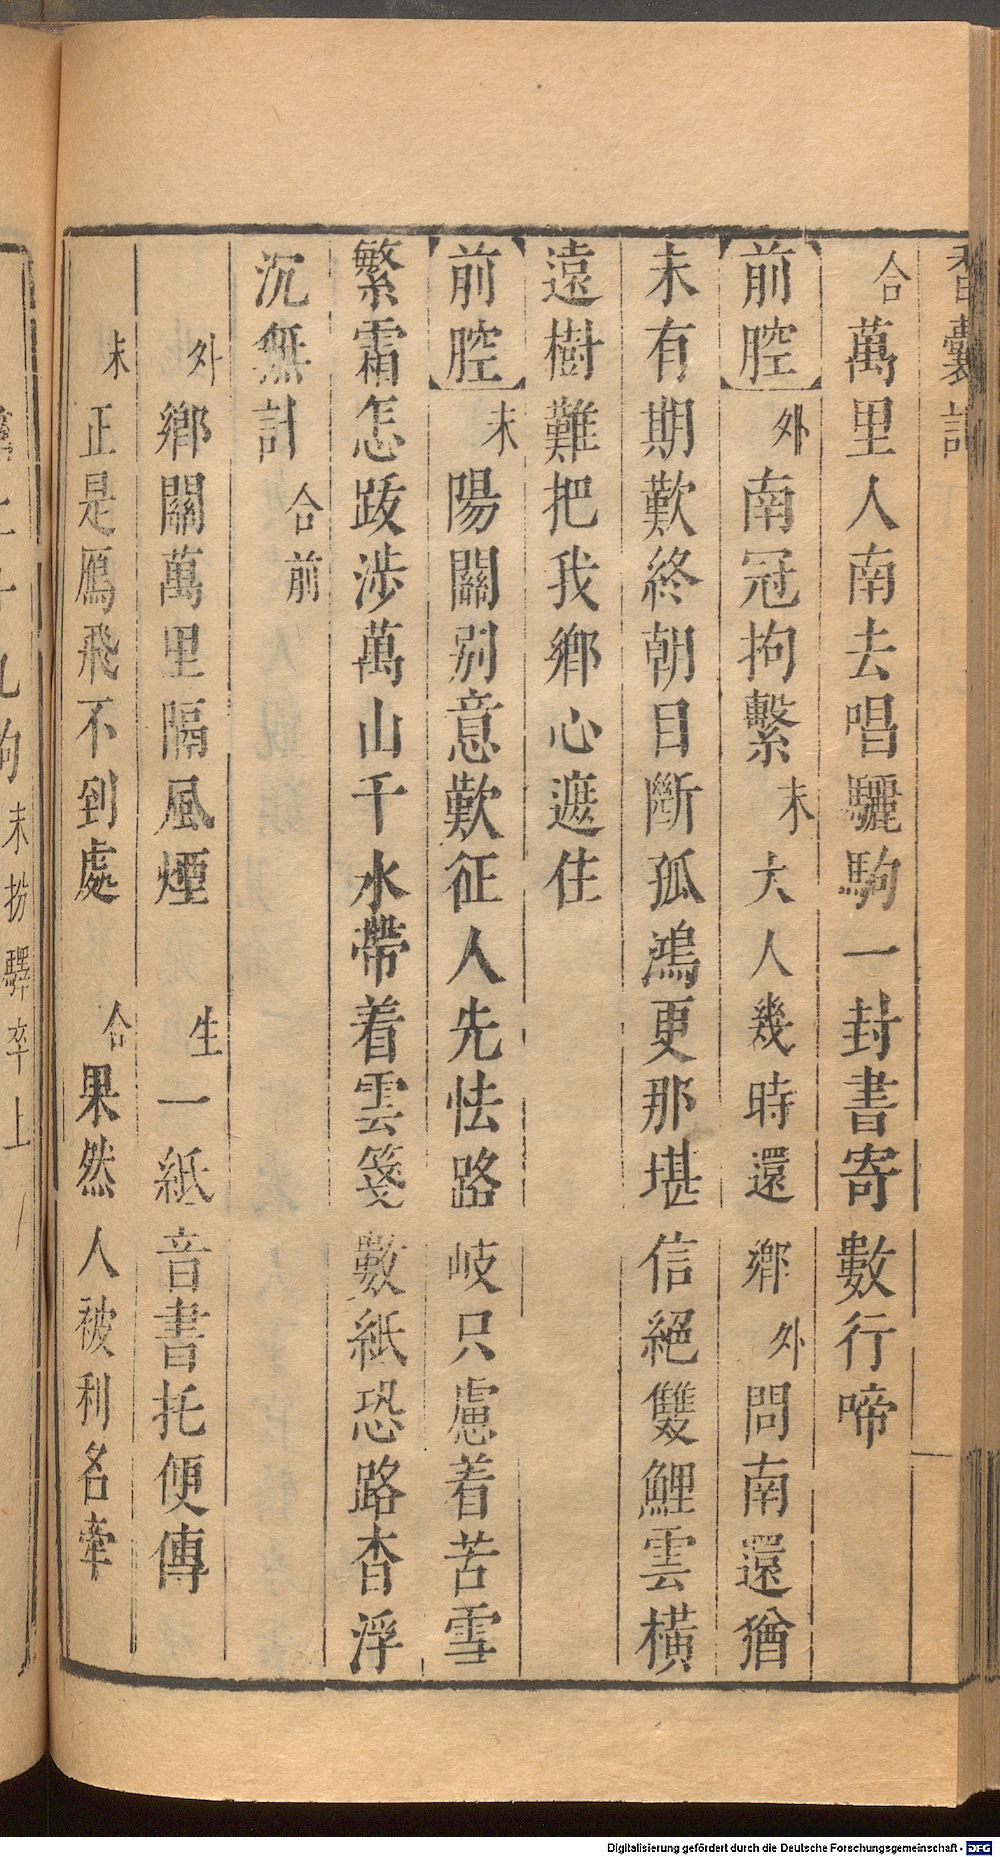 香囊記
合萬里人南去唱驪駒一封書寄數行啼
【前腔】外南冠拘繫末大人幾時還鄉外問南還猶
未有期歎終朝目斷孤鴻更那堪信絕雙鯉雲橫
遠樹難把我鄉心遮住
【前腔】末陽關別意歎征人先怯路岐只慮着苦雪
繁霜怎跋涉萬山千水帶着雲箋數紙恐路杳浮
沉無計合前
外鄉關萬里隔風煙 生一紙音書托便傳
末正是鴈飛不到處 合果然人被利名牽
末扮驛卒上
Digitalisierung gefördert durch die Deutsche Forschungsgemeinschaft - DFG